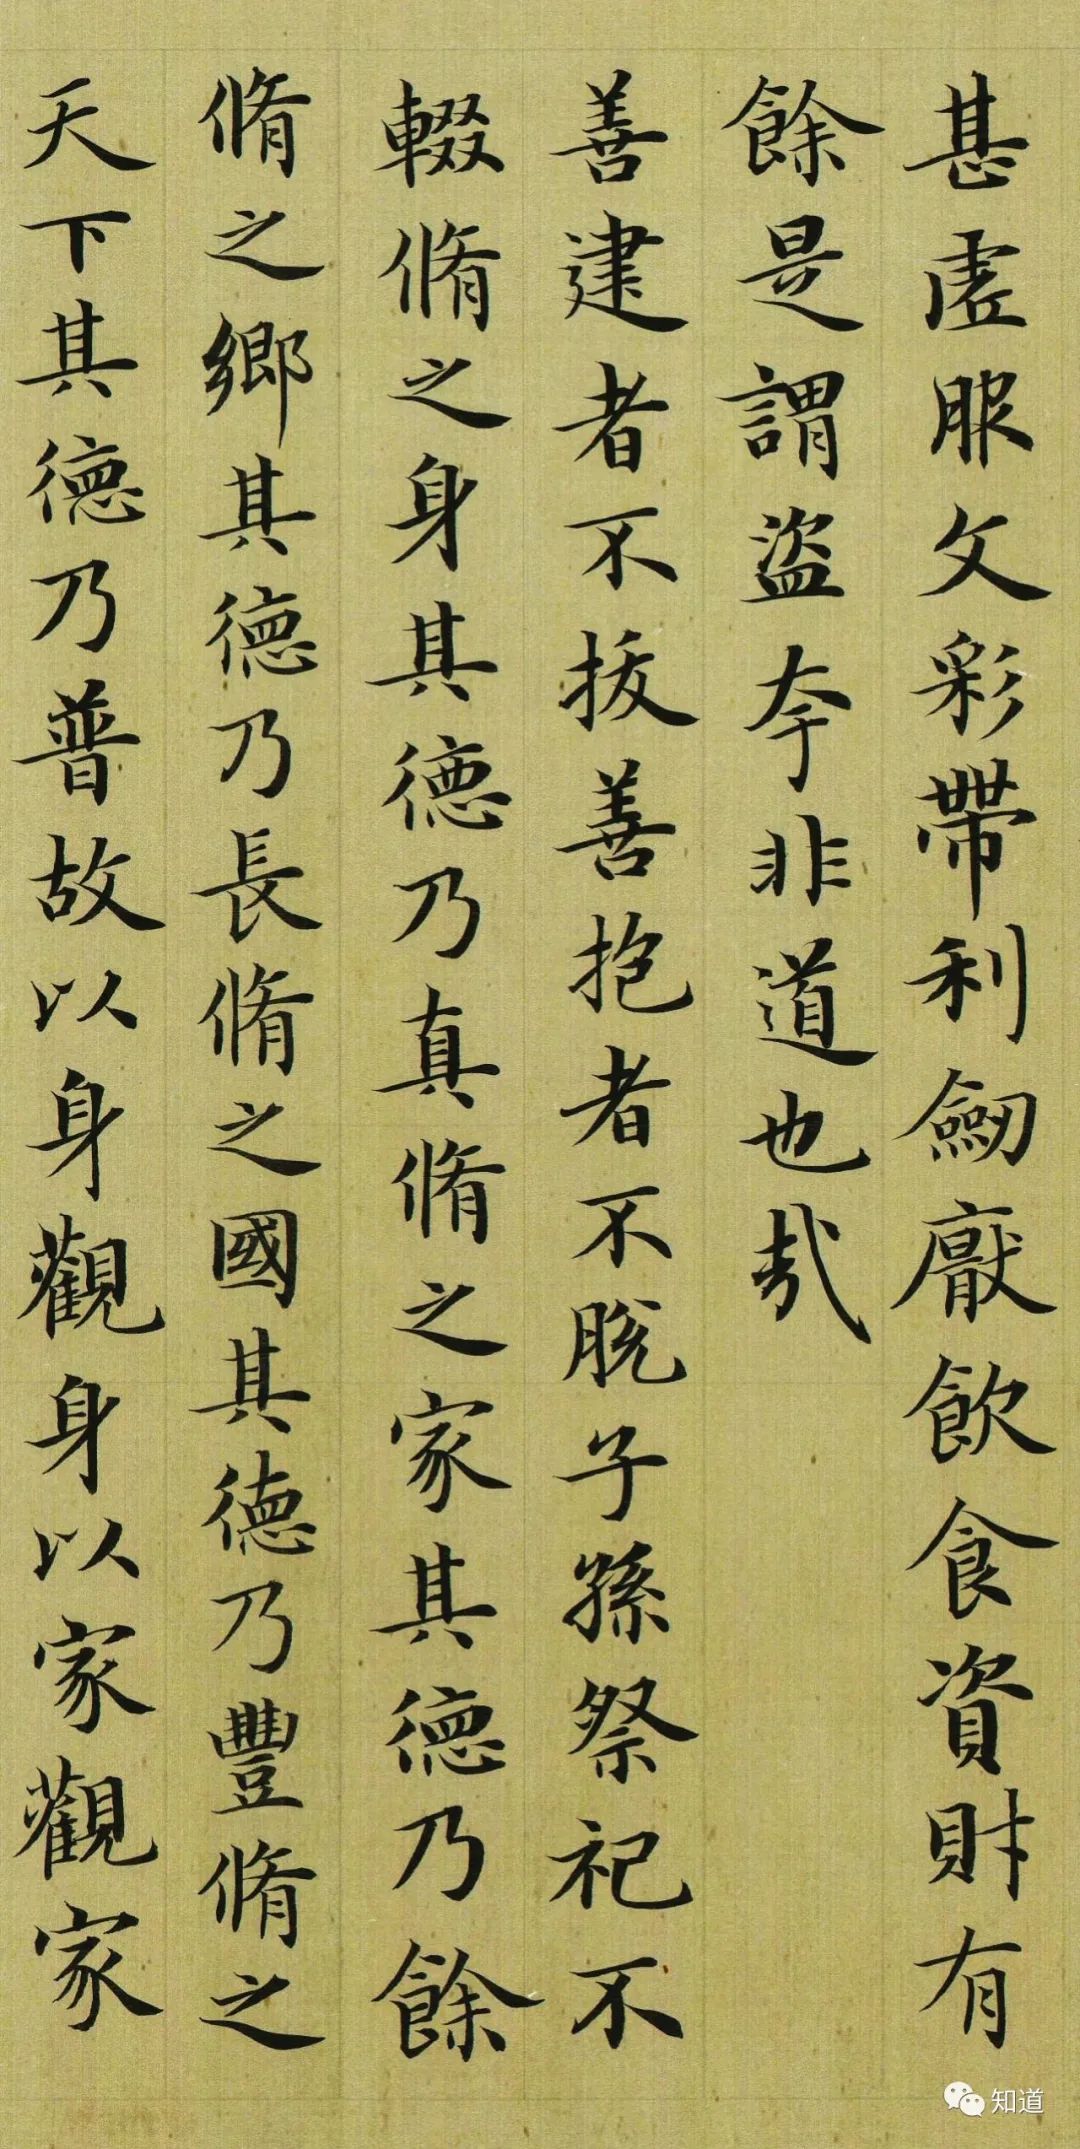 甚虛服文彩帶利劒厭飲食資財有
餘是謂盜夸非道也哉
善建者不拔善抱者不脫子孫祭祀不
輟脩之身其德乃真脩之家其德乃餘
脩之鄉其德乃長脩之國其德乃豐脩之
天下其德乃普故以身觀身以家觀家
知道